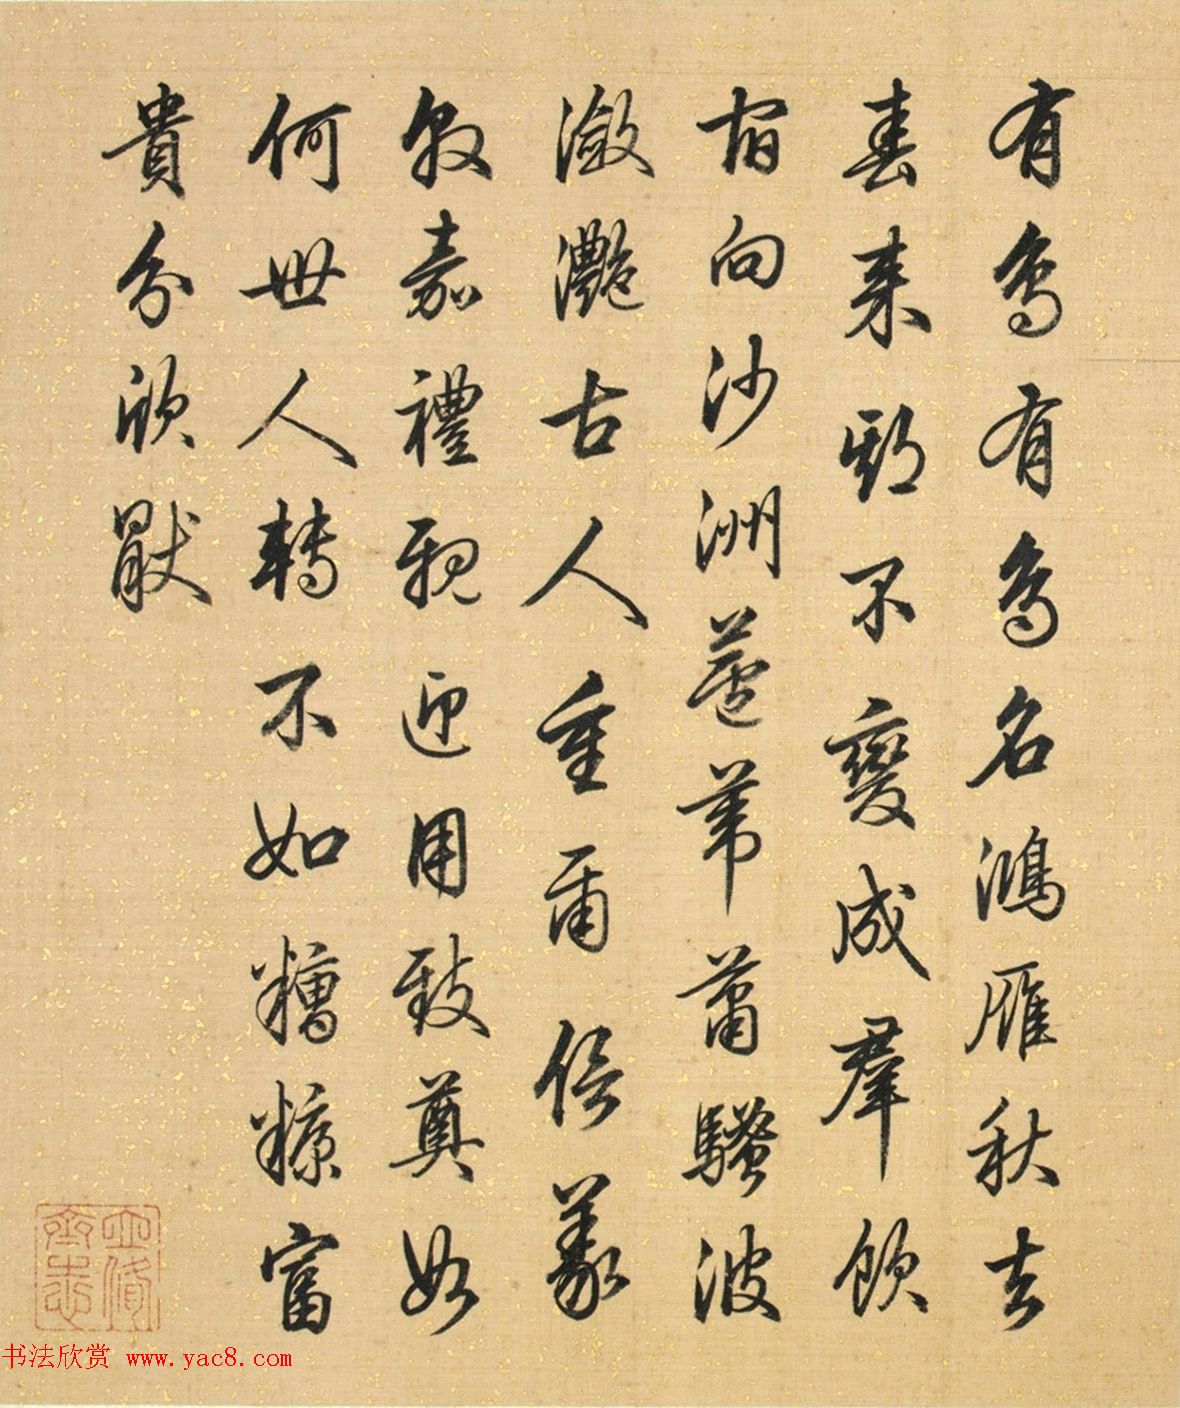 有鳥有鳥名鴻雁秋去
春来期不變成羣飲
宿向沙洲蘆葦蕭騷波
瀲灩古人重爾信義
敦嘉禮親迎用致奠如
何世人轉不如糟糠富
貴分欣厭
书法欣赏 www.yac8.com